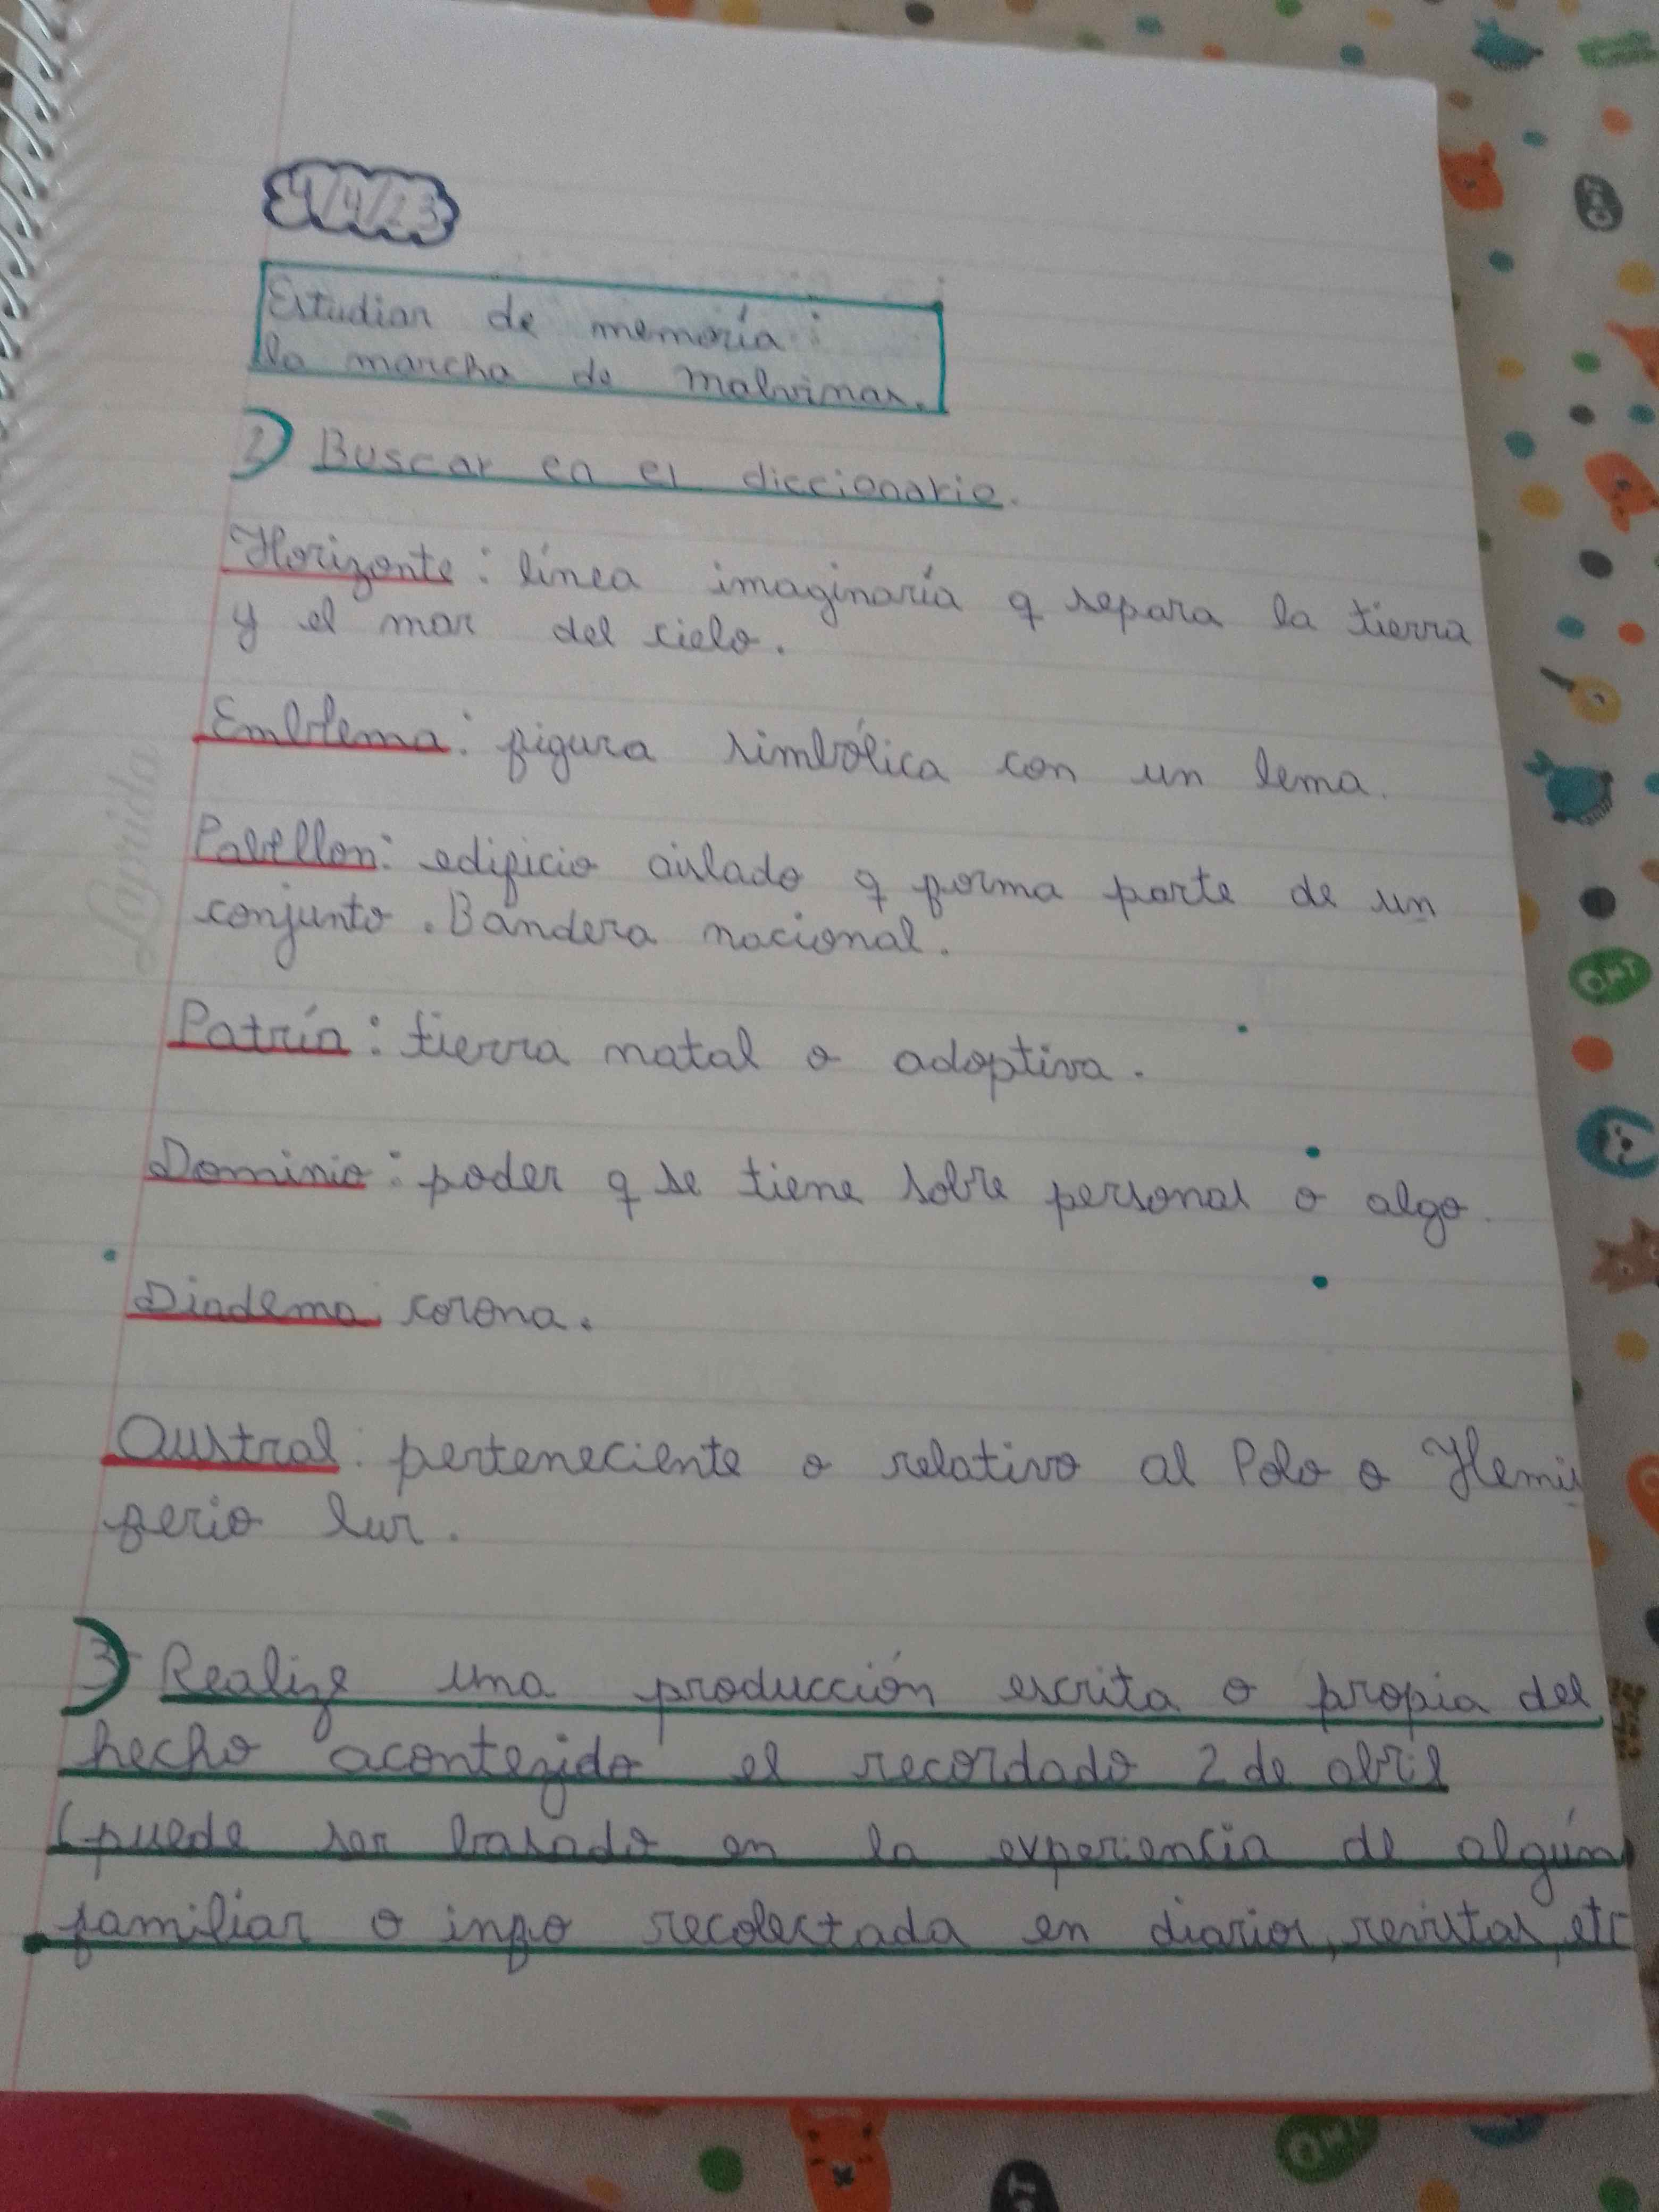 4/4/23
Estudiar de memoría :
la marcha de malvinas.
2) Buscar en el diccionario.
Horizonte : línea imaginaría q separa la tierra
y el mar del cielo.
Emblema : figura simbólica con un lema.
Pabellon : edificio aislado q forma parte de un
conjunto . Bandera nacional.
Patría : tierra natal o adoptiva.
Dominio : poder q se tiene sobre personas o algo.
Diadema: corona.
Austral : perteneciente o relativo al Polo o Hemis
ferio Sur.
3) Realize una producción escrita o propia del
hecho acontezido el recordado 2 de abril
(puede ser basado en la experiencia de algún
familiar o info recolectada en diarios, revistas, etc
Laprida